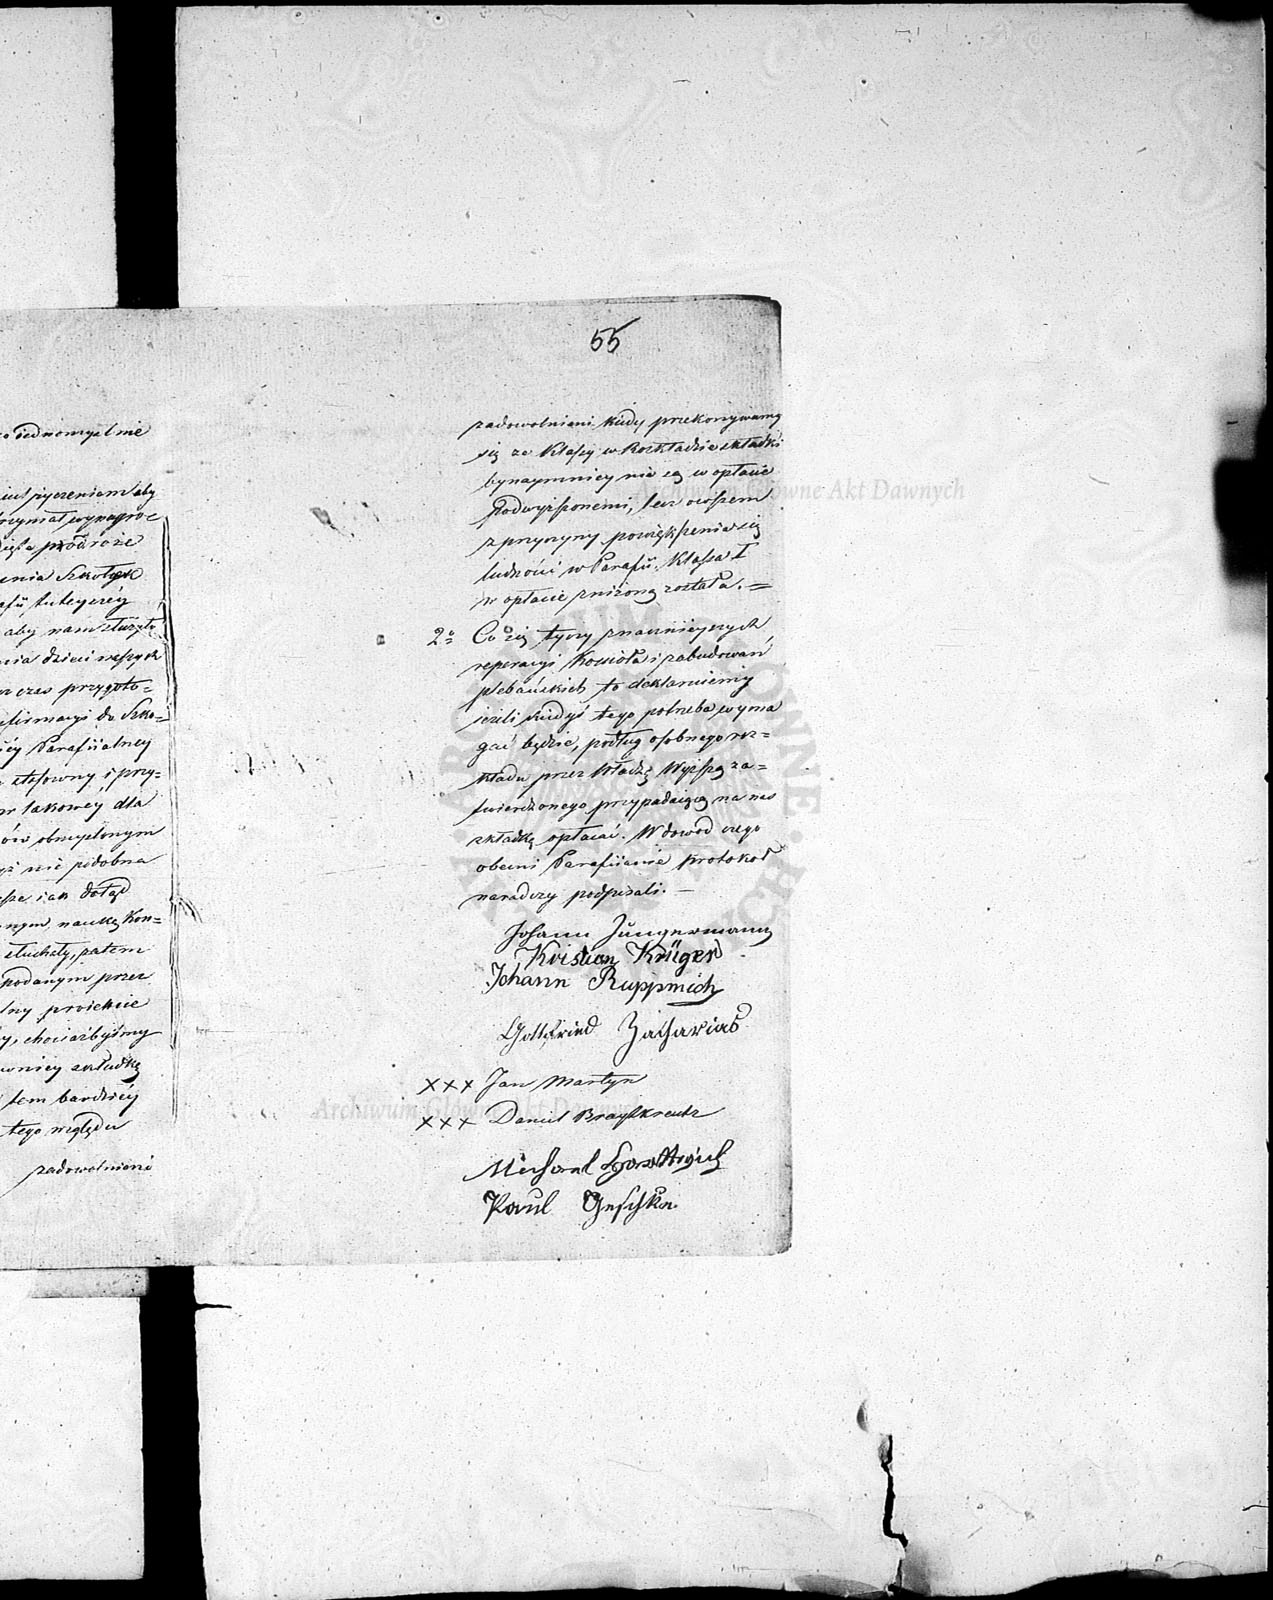 jednomyślnie
życzeniem aby
otrzymał wynagro=
podróże
Szkołek
tuteyszéy
aby nam służyło
dzieci naszych
czas przygoto=
do Szko=
Parafiialney
stósowny i przy=
takowey dla
obmyslonym
nie podobna
iak dotąd
naukę Kon=
słuchały, zatem
podanym przez
proiekcie
chociażbyśmy
składkę
tem bardziéy
tego względu
zadowolnieni
55
zadowolnieni kiedy przekonywamy
się ze Klassy w Rozkładzie składki
bynaymniey nie są w opłacie
Podwyższonemi, lecz owszem
z przyczyny powiększenia się
ludności w Parafii, Klassa I
w opłacie zniżoną została. =
2° Co się tyczy znacznieyszych
reperacyi Kościoła i zabudowań
plebańskich to deklaruiemy
ieżeli kiedyś tego potrzeba wyma
gać będzie, podług osobnego roz=
kładu przez Władzę Wyższą za=
twierdzonego przypadaiącą na nas
składkę opłacać. W dowód czego
obecni Parafiianie protokoł
naradczy podpisali. —
Johann Jüngermann
Kristian Krüger
Johann Ruppnich
Gottfried Zacharias
xxx Jan Martyn
xxx Daniel Braytkreutz
Michael
Paul Geschke
Archiwum Główne Akt Dawnych
Archiwum Główne Akt Dawnych
ARCHIWUM GŁÓWNE AKT DAWNYCH